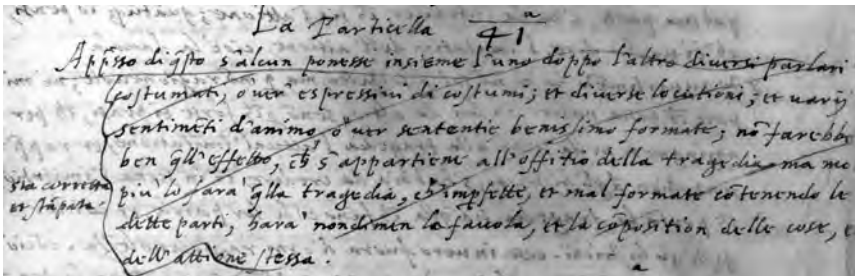 La Particella 41 a
App̃sso di q̃sto s'alcun ponesse insieme l'uno doppo l'altro diversi parlari
costumati, o ver' espressivi di costumi; et diverse locutioni; et varij
sentimẽti d'animo o' ver sententie benissimo formate; nõ farebbe
ben q̃ll' effetto, ch' s'appartiene all' offitio della tragedia, ma mo
sta corretta
piu lo fara' q̃lla tragedia, ch' impfette, et mal formate cõtenendo le
et stãpata.
dette parti, hara' nondimen la favola, et la cõposition delle cose, e
dell' attione stessa.
a